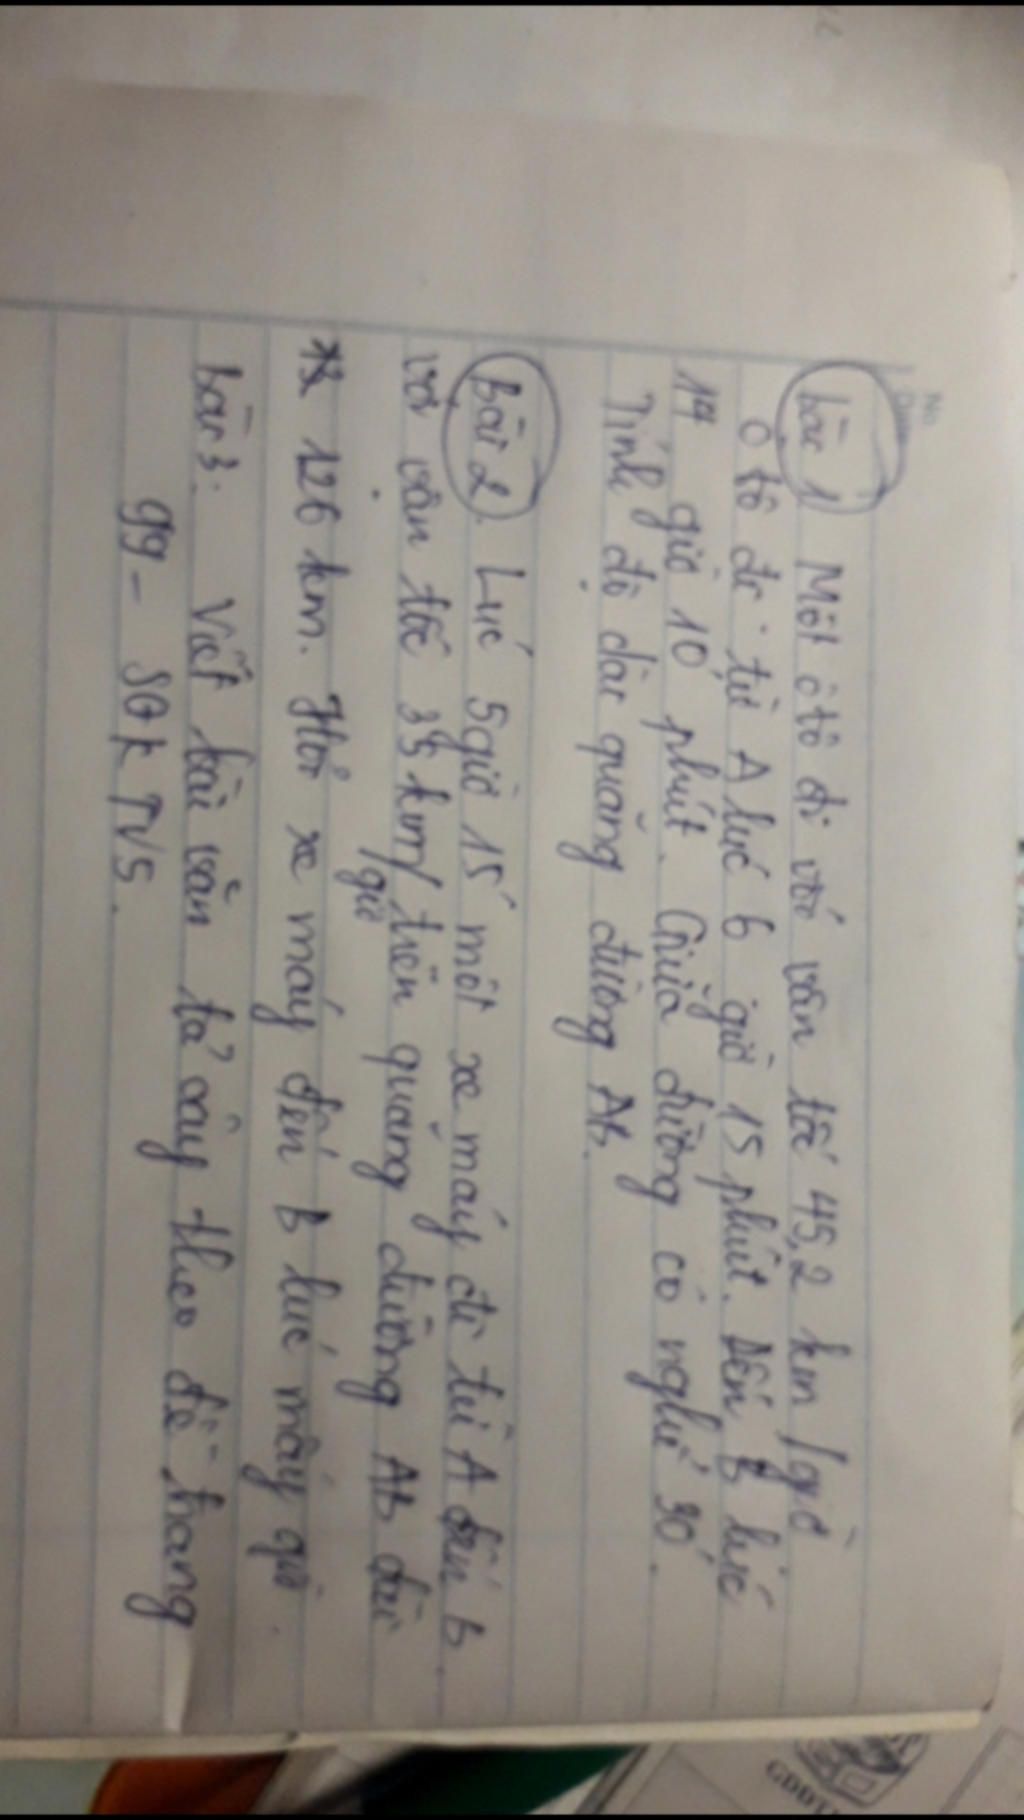 No.
bài 1 Một ô tô đi với vận tốc 45,2 km/giờ
Ô tô đi từ A lúc 6 giờ 15 phút. Đến B lúc
giờ 10 phút. Giữa đường có nghỉ 30'.
Tính độ dài quãng đường AB.
Bài 2. Lúc 5giờ 15' một xe máy đi từ A đến B.
với vận tốc 35 km/giờ trên quang đường AB dài
126 km. Hỏi xe máy đến B lúc mấy giờ.
bài 3. Viết bài văn tả cây theo đề trang
99 - SGK TV5.
GDĐT